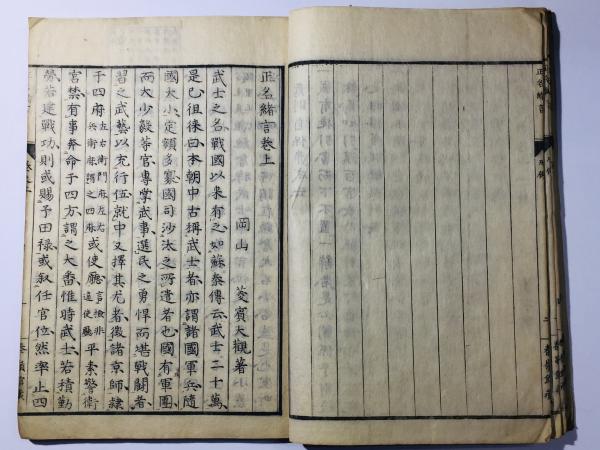 正名緒言卷上
岡山 菱賓大觀著
武士之名戰國以來有之如蘇秦傳云武士二十萬
是也徂徠曰本朝中古稱武士者亦謂諸國軍兵隨
國大小定額多寡國司沙汰之所遣若也國有軍團
而大少毅等官專掌武事選民之勇悍而堪戰鬪者
習之武藝以充行伍就中又擇其尤者徵諸京師隸
于四府左右衛門府左右兵衛府謂之四府或使廳言檢非違使廳平素警衛
宮禁有事奔命于四方謂之大番惟時武士若積勤
勞若建戰功則或賜予田祿或叙任官位然率止四
正名緒言